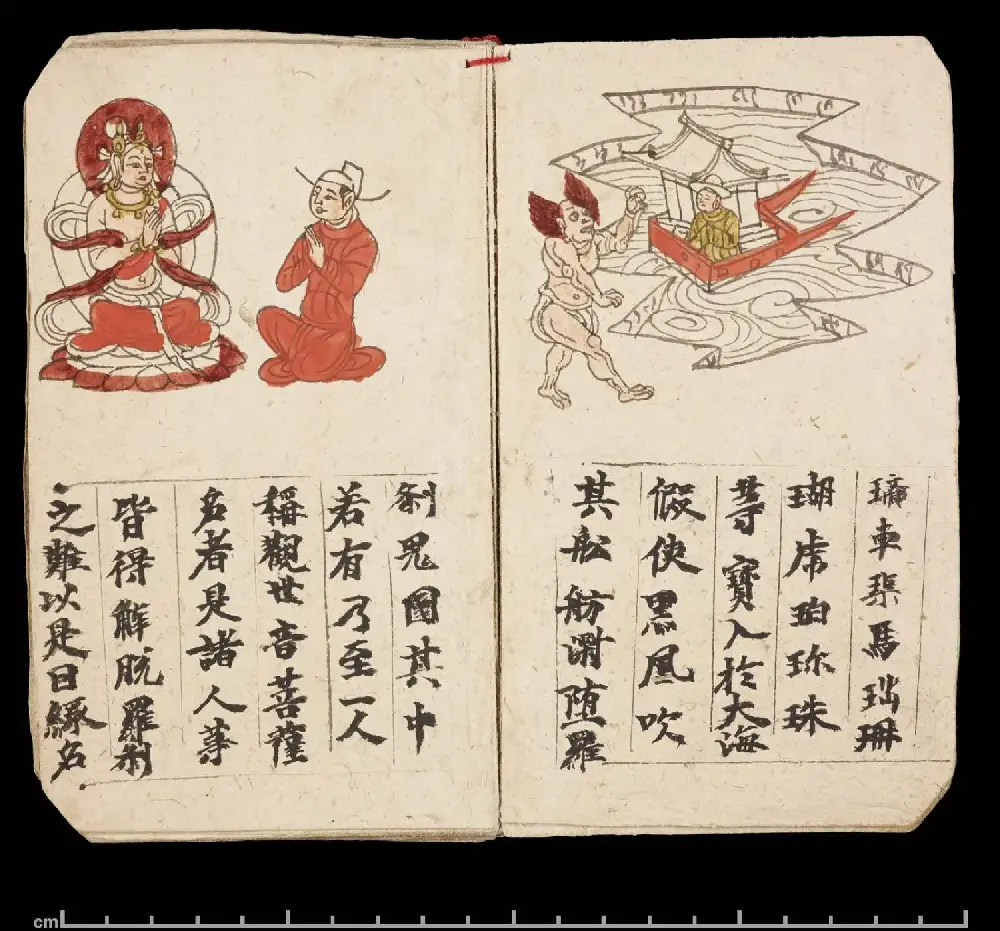 璃車渠馬瑙珊
瑚虎珀珎珠
等寶入於大海
假使黑風吹
其舩舫堕羅
刹鬼國其中
若有乃至一人
稱觀世音菩薩
名者是諸人等
皆得解脫羅刹
之難以是囙緣名
cm